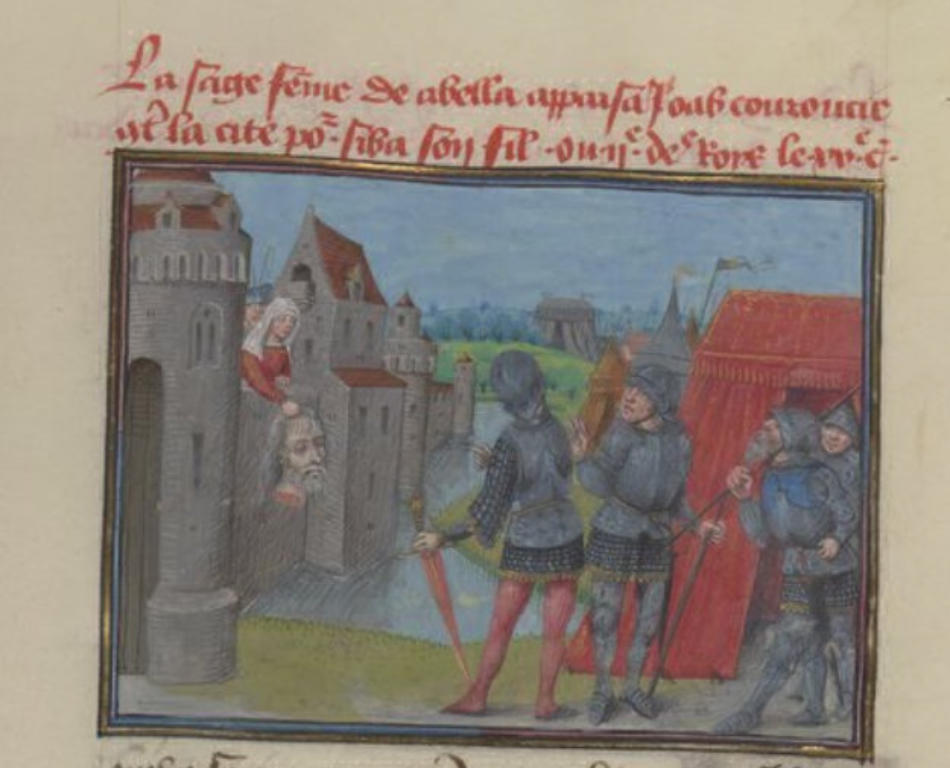 La sage fẽme de abella appaisa Joab couroucie
9t̃ la cite po᷑ siba son fil · ou · ij · de Roys le · xx · c̃ ·